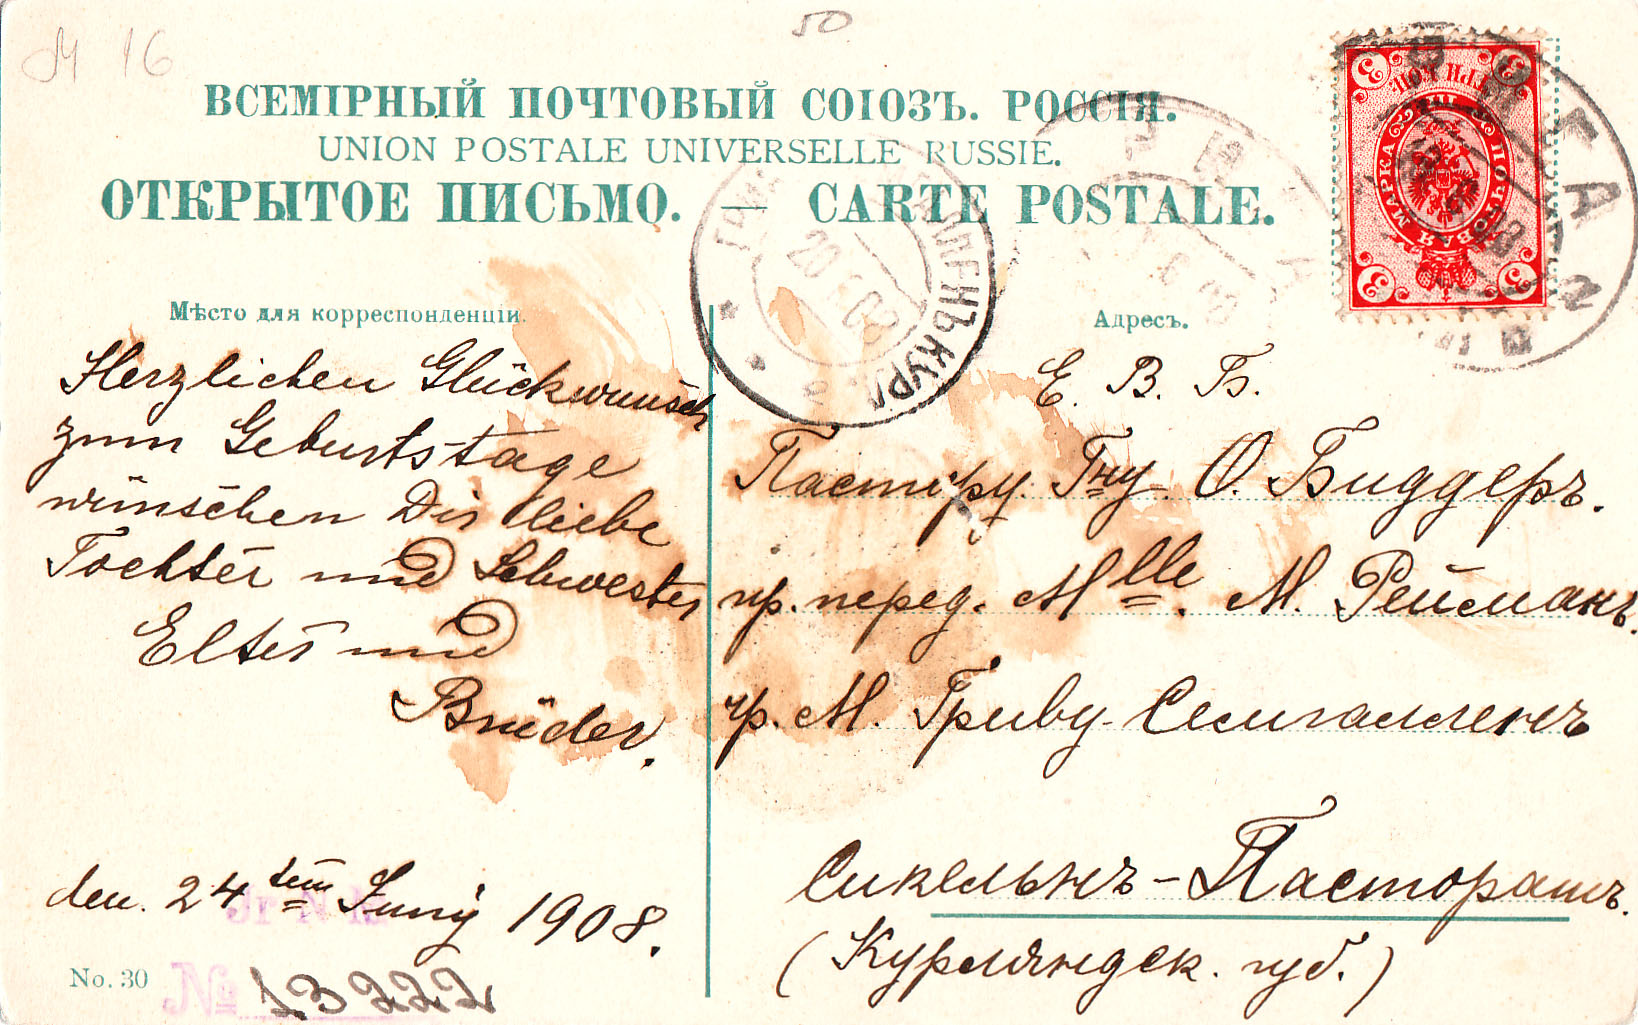 М 16
50
ВСЕМІРНЫЙ ПОЧТОВЫЙ СОЮЗЪ. РОССІЯ.
UNION POSTALE UNIVERSELLE RUSSIE.
ОТКРЫТОЕ ПИСЬМО. — CARTE POSTALE.
Мѣсто для корреспонденціи.
Herzlichen Glückwunsch
zum Geburtstage
wünschen Dir liebe
Tochter und Schwester
Elter und
Brüder.
den. 24 tem Juny 1908.
No. 30
№ 13222
Адресъ.
Е. В. Б.
Пастору Гну О. Биддеръ.
пр. перед. Mlle. М. Рейманъ.
чр. М. Гриву-Семгалленъ
Сикельнъ-Пасторатъ.
(Курляндск. губ.)
РИГА
ГРИВА СЕМГАЛЛЕНЪ КУРЛ.
20 6 08
3 3 3 3
ПОЧТОВАЯ МАРКА
ТРИ КОП
РИГА 2